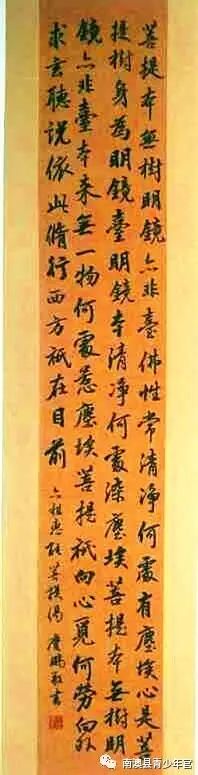 菩提本無樹明鏡亦非臺佛性常清淨何處有塵埃心是菩
提樹身為明鏡臺明鏡本清淨何處染塵埃菩提本無樹明
鏡亦非臺本来無一物何處惹塵埃菩提祇向心覓何勞向外
求玄聽說依此脩行西方祇在目前
六祖惠能菩提偈 鵬敬書
南澳县青少年宫